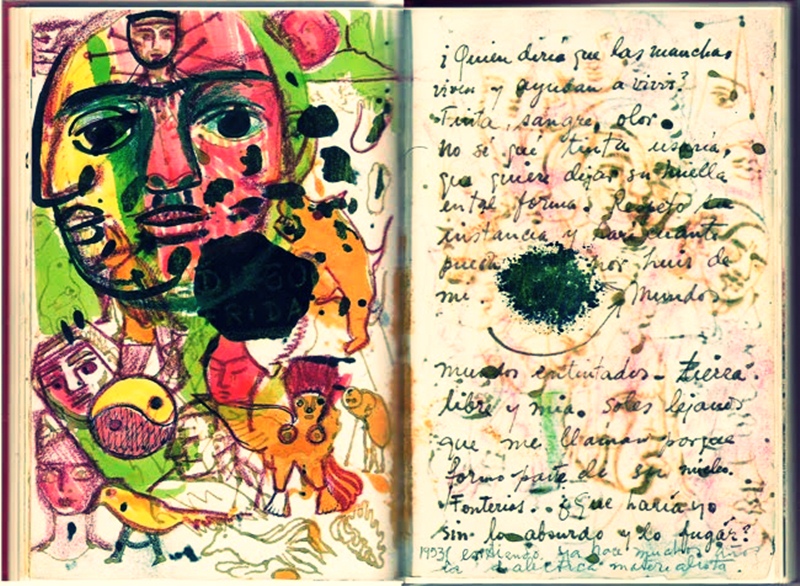 DIEGO
FRIDA
¿Quien diria que las manchas
viven y ayudan a vivir?
Tinta, sangre, olor.
no sé qué tinta usaria,
que quiere dejar su huella
en tal forma. Respeto su
instancia y haré cuanto
pueda por huir de
mi Mundos
mundos entintados – tierra
libre y mia. soles lejanos
que me llaman porque
formo parte de su nucleo.
Tonterias. ¿Que haria yo
sin lo absurdo y lo fugáz?
1953 entiendo ya hace muchos años
la dialectica materialista